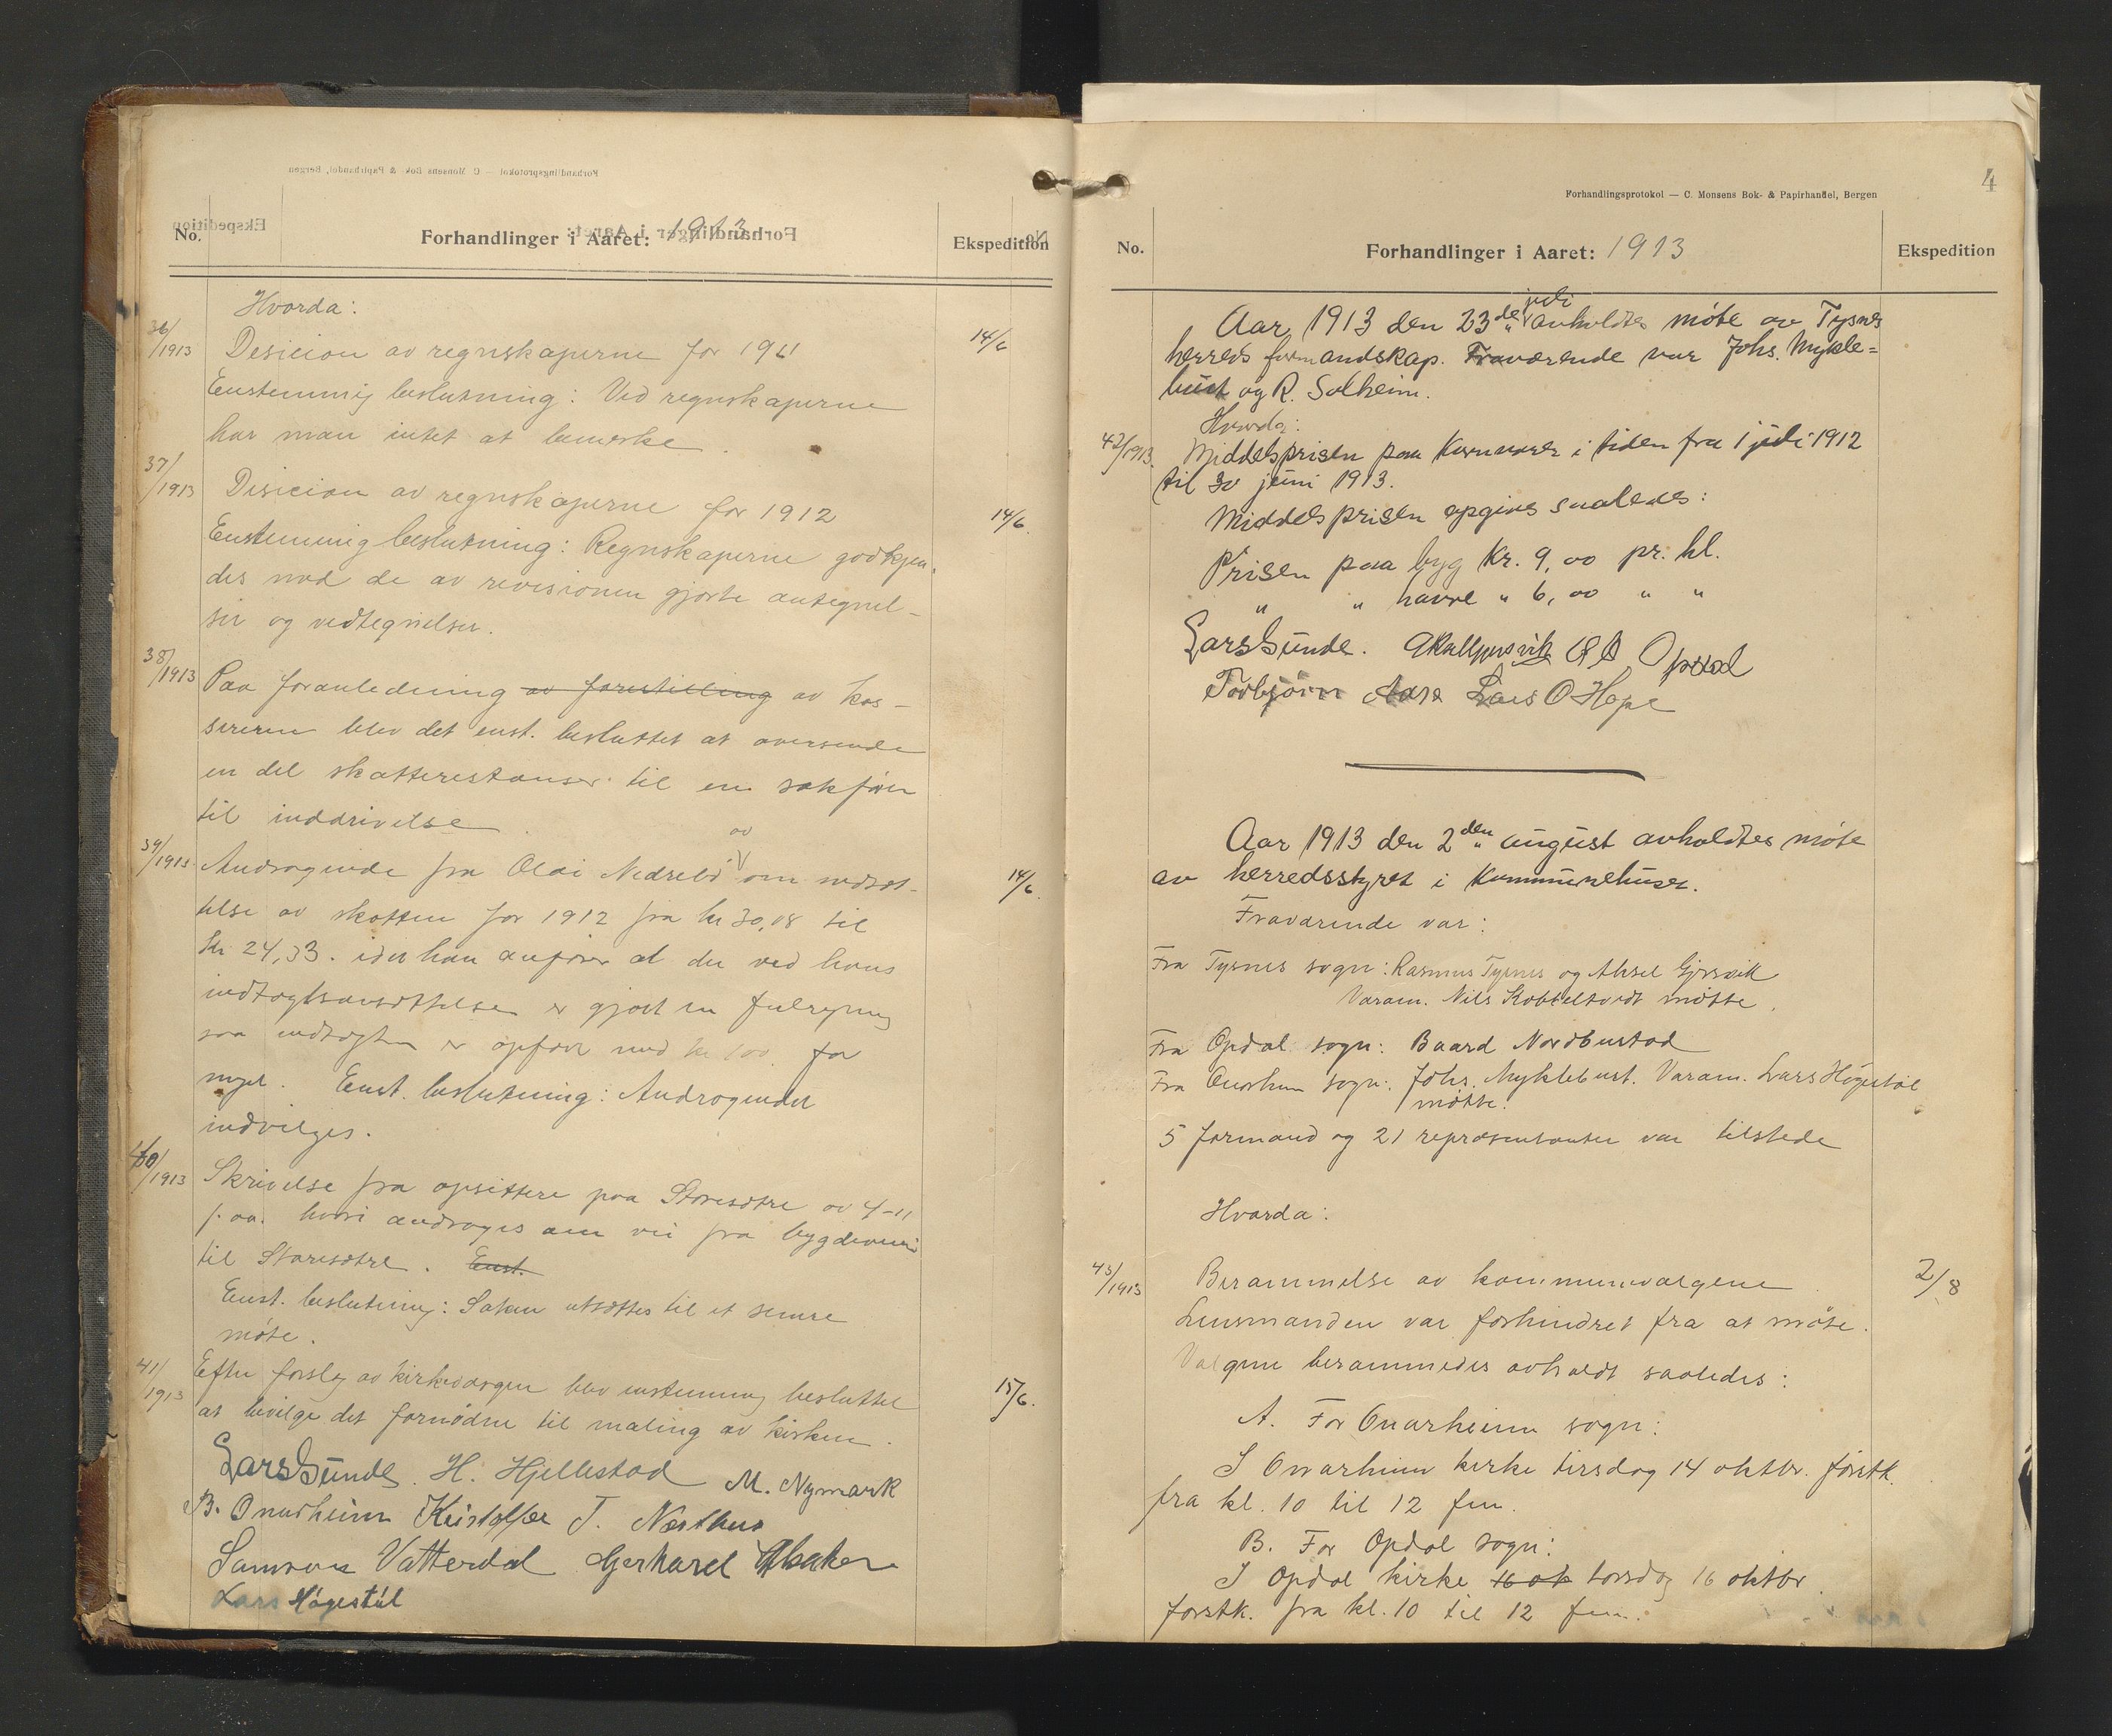 No.
Forhandlinger i Aaret: 1913
Ekspedition
Hvorda:
36/1913 Desicion av regnskaperne for 1911 14/6
Enstemmig beslutning: Ved regnskaperne
har man intet at bemerke.
37/1913 Desicion av regnskaperne for 1912 14/6.
Enstemmig beslutning: Regnskaperne godkjen-
des med de av revisionen gjorte antegnel-
ser og vedtegnelser.
38/1913 Paa foranledning av forestilling av kas-
sereren blev det enst. besluttet at oversende
en del skatterestanser til en sakfører
til inddrivelse.
39/1913 Andragende fra Olai Nedrebø av om nedsæt-
telse av skatten for 1912 fra kr 30,08 til 14/6.
kr 24,33. idet han anfører at der ved hans
indtægtsansættelse er gjort en feilregning
saa indtægten er opført med kr 100 for
meget. Enst. beslutning: Andragendet
indvilges.
40/1913 Skrivelse fra opsittere paa Storesætre av 4-11
f. aa. hvori andrages om vei fra bygdeveien
til Storesætre. Enst.
Enst. beslutning: Saken utsættes til et senere
møte.
41/1913 Efter forslag av kirkeværgen blev enstemmig besluttet 15/6.
at bevilge det fornødne til maling av kirken.
Lars Sunde. H. Hjellestad M. Nymark
B. Onarheim Kristoffer T. Næsthus
Samson Vatterdal Gerhard
Lars Høgestøl
4
Forhandlingsprotokol — C. Monsens Bok- & Papirhandel, Bergen
No.
Forhandlinger i Aaret: 1913
Ekspedition
juli
Aar 1913 den 23de avholdtes møte av Tysnes
herreds formandskap. Fraværende var Johs. Mykle=
bust og R. Solheim.
Hvorda:
42/1913. Middelsprisen paa kornvarer i tiden fra 1 juli 1912
til 30 juni 1913.
Middelsprisen opgives saaledes:
Prisen paa byg kr. 9,00 pr. hl.
" " havre " 6,00 " "
Lars Sunde. Opdal
Torbjørn Aase Lars O Hope
Aar 1913 den 2den august avholdtes møte
av herredsstyret i Kommunehuset.
Fraværende var:
Fra Tysnes sogn: Rasmus Tysnes og Aksel Gjersvik
Varam. Nils Kobbeltvedt møtte.
Fra Opdal sogn: Baard Nordbustad
Fra Onarheim sogn: Johs. Myklebust. Varam. Lars Høgestøl
møtte.
5 formænd og 21 repræsentanter var tilstede
Hvorda:
43/1913 Berammelse av kommunevalgene. 2/8
Lensmanden var forhindret fra at møte.
Valgene berammedes avholdt saaledes:
A. For Onarheim sogn:
I Onarheim kirke tirsdag 14 oktbr. førstk.
fra kl. 10 til 12 fm.
B. For Opdal sogn:
I Opdal kirke 16 ok torsdag 16 oktbr.
førstk. fra kl. 10 til 12 fm.